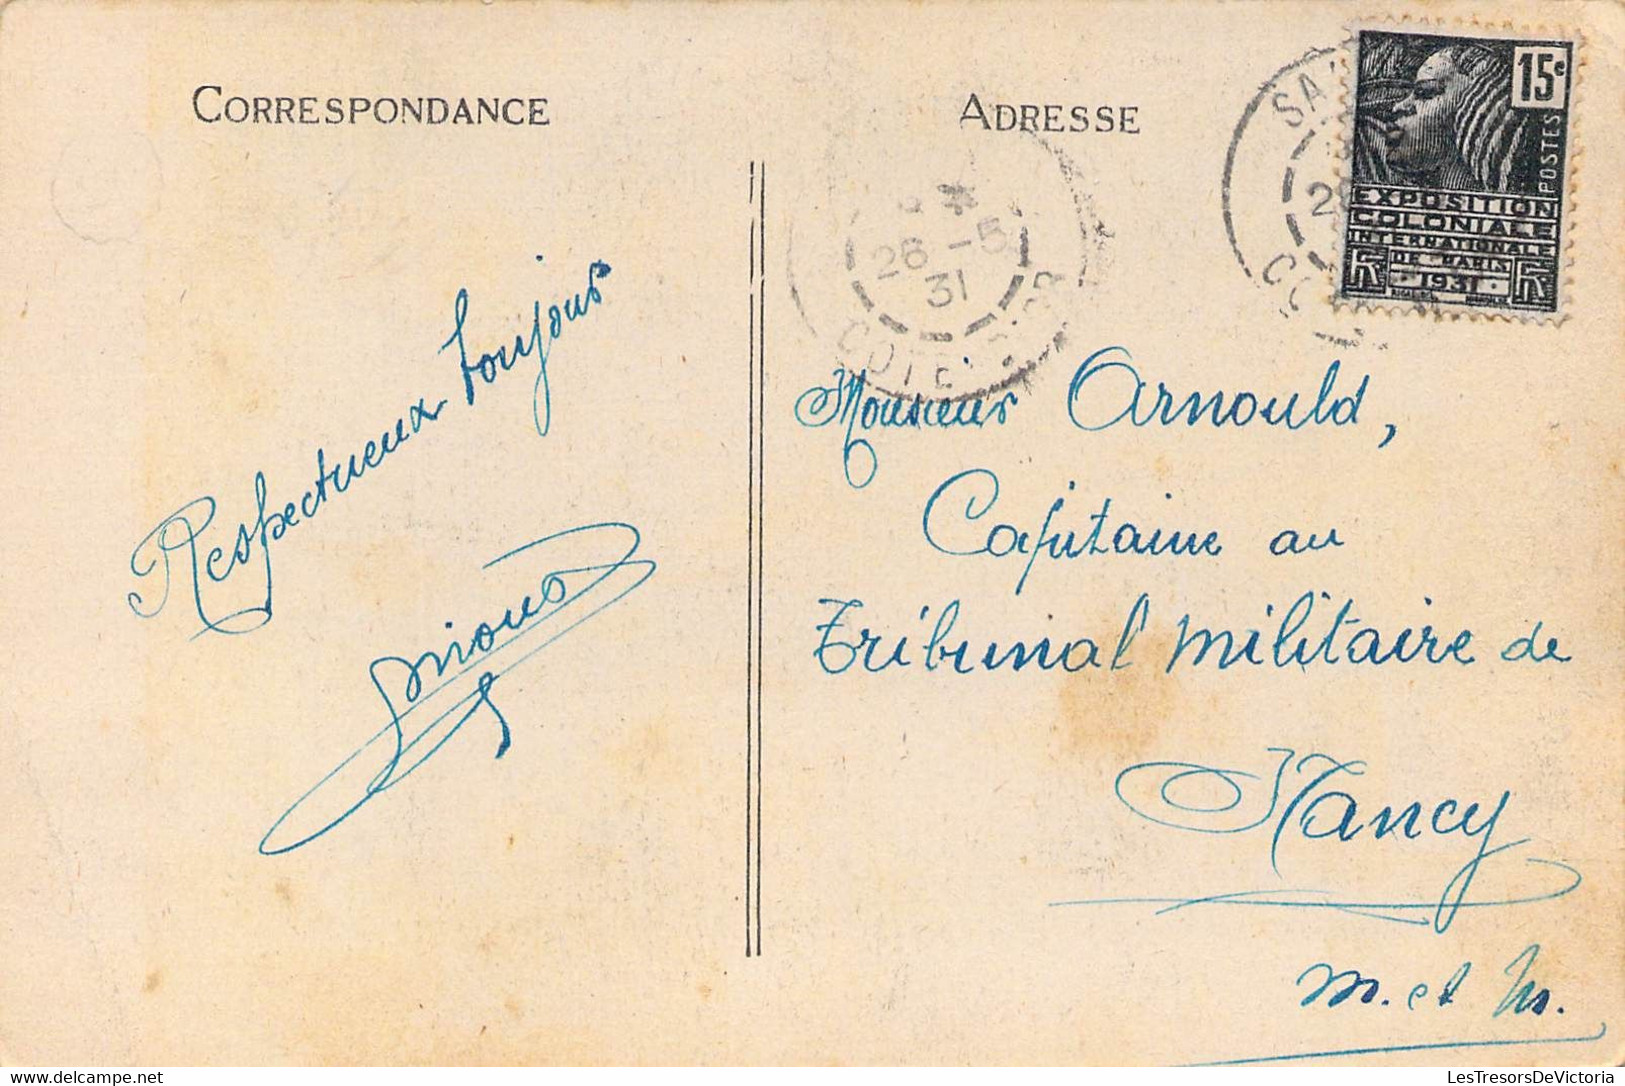 CORRESPONDANCE
Respectueux toujours
ADRESSE
26 -5
31
COTE
SA
15c
POSTES
EXPOSITION
COLONIALE
INTERNATIONALE
DE PARIS
1931
Monsieur Arnould,
Capitaine au
Tribunal Militaire de
Nancy
M. et M.
delcampe.net
LesTresorsDeVictoria